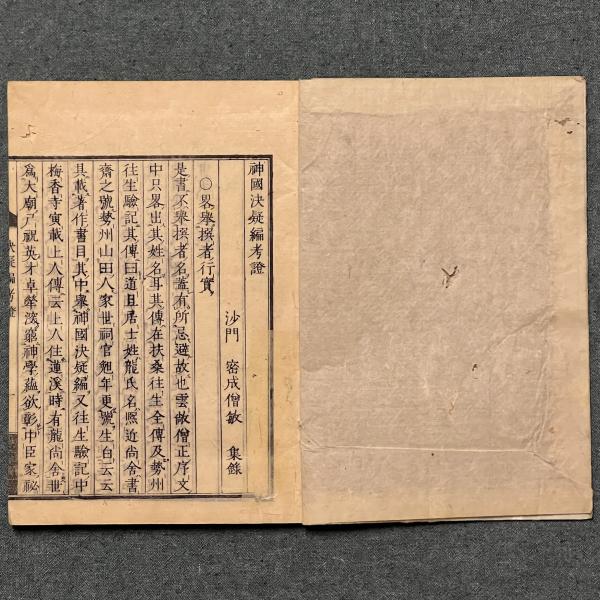 神國決疑編考證
沙門　密成僧敏　集錄
○畧舉撰者行實
是書不舉撰者名蓋有所忌避故也雲敞僧正序文
中只畧出其姓名耳其傳在扶桑往生全傳及勢州
往生驗記其傳曰道且居士姓龍氏名凞近尚舍書
齋之號勢州山田人家世祠官兔年更號生白云云
具載著作書目其中舉神國決疑編又往生驗記中
梅香寺寅載上人傳云上人住蓮溪時有龍尚舍世
爲大廟尸祝英才卓犖淹窮神學蘊欲彰中臣家祕
決疑編考證